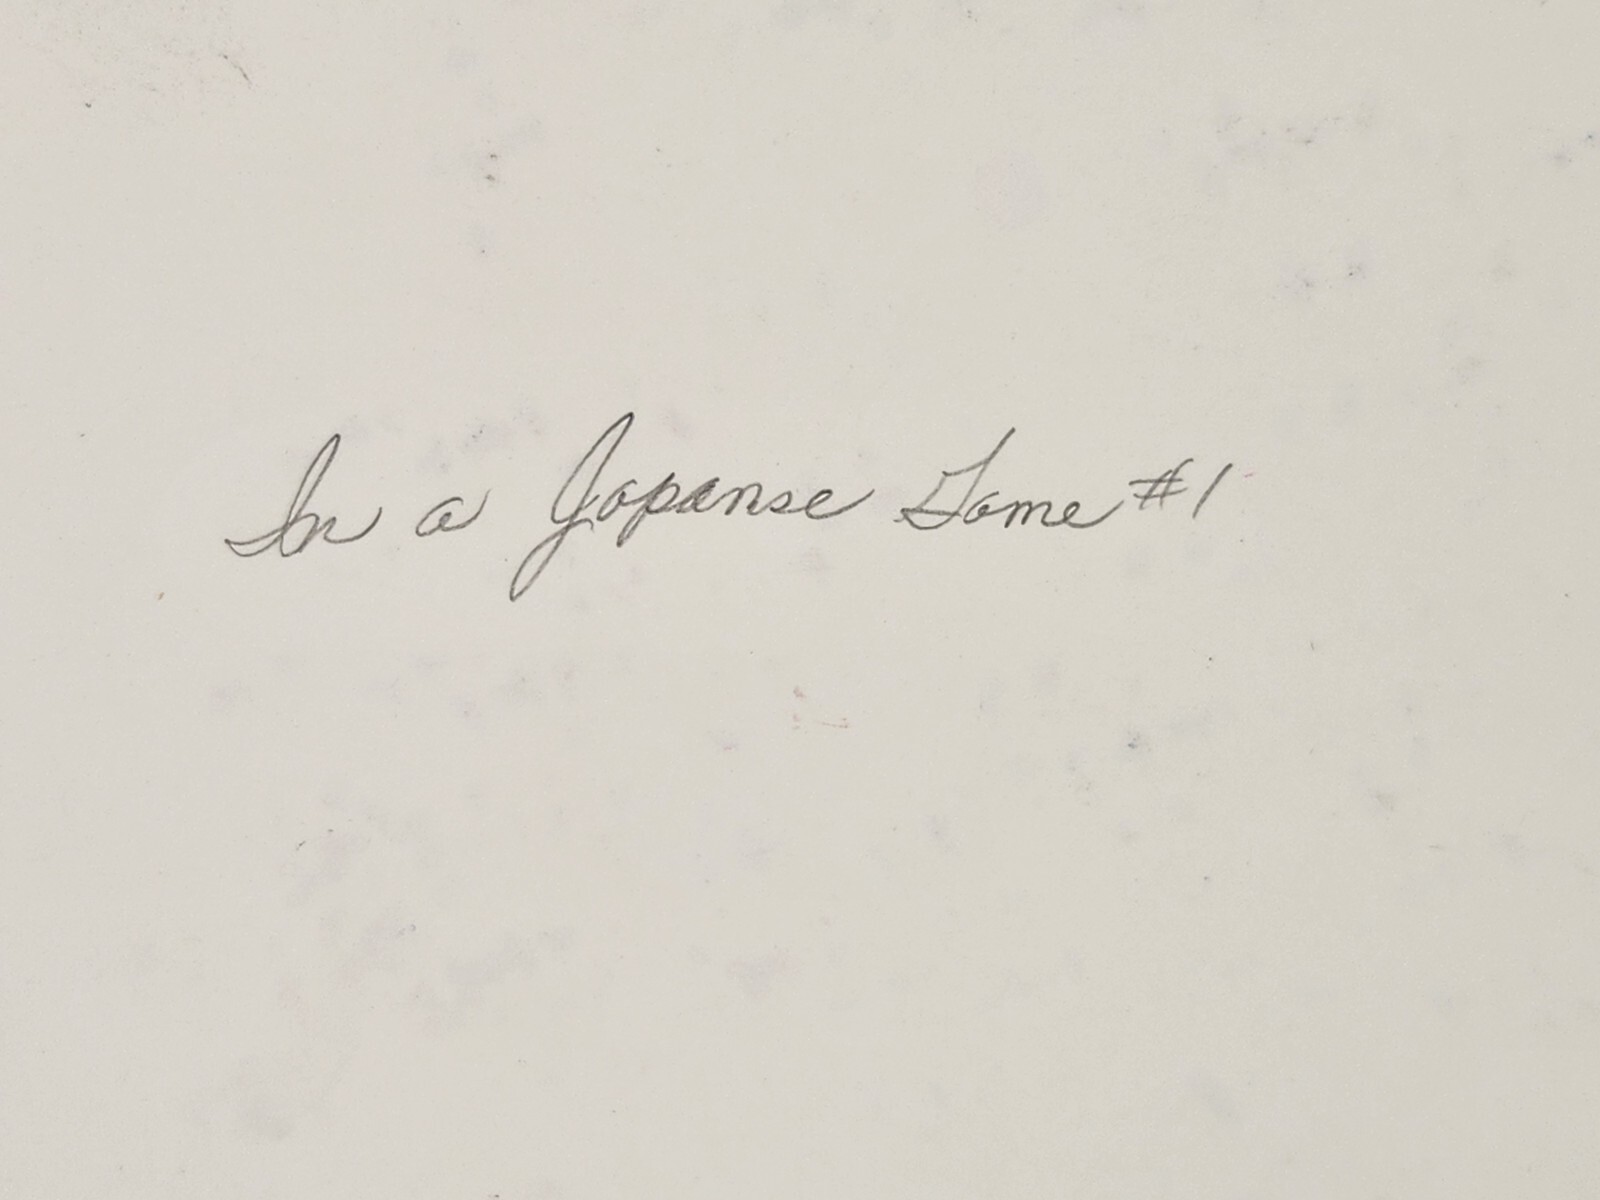 In a Japanse Game #1